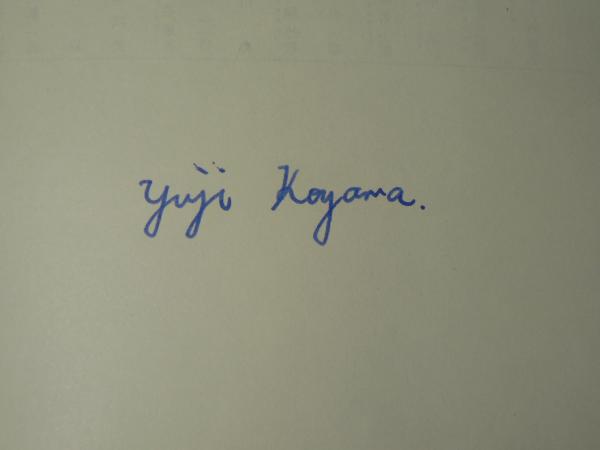 Yuji Koyama.